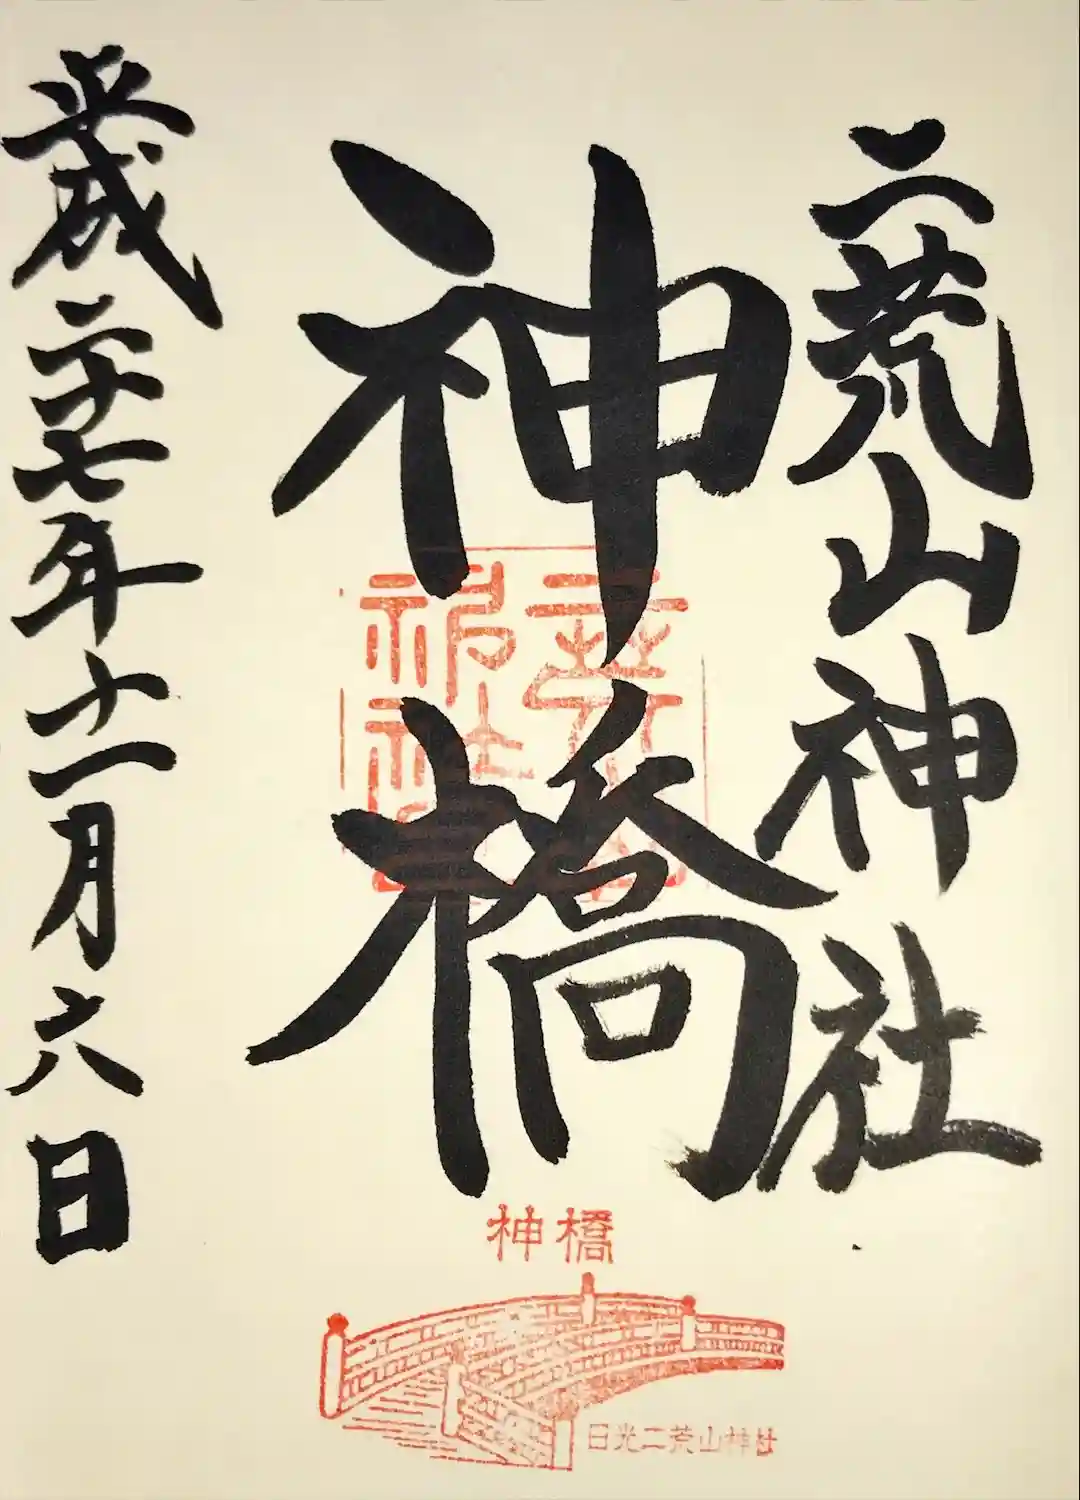 二荒山神社
神橋
平成二十七年十一月六日
神橋
日光二荒山神社